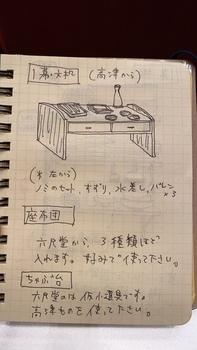 1幕・大机 (高津から)
(※左から)
ノミのセット、すずり、水差し、バレン×3
座布団
六尺堂から、3種類ほど
入れます。好みで使って下さい。
ちゃぶ台
六尺堂のは仮小道具です。
高津ものを使って下さい。